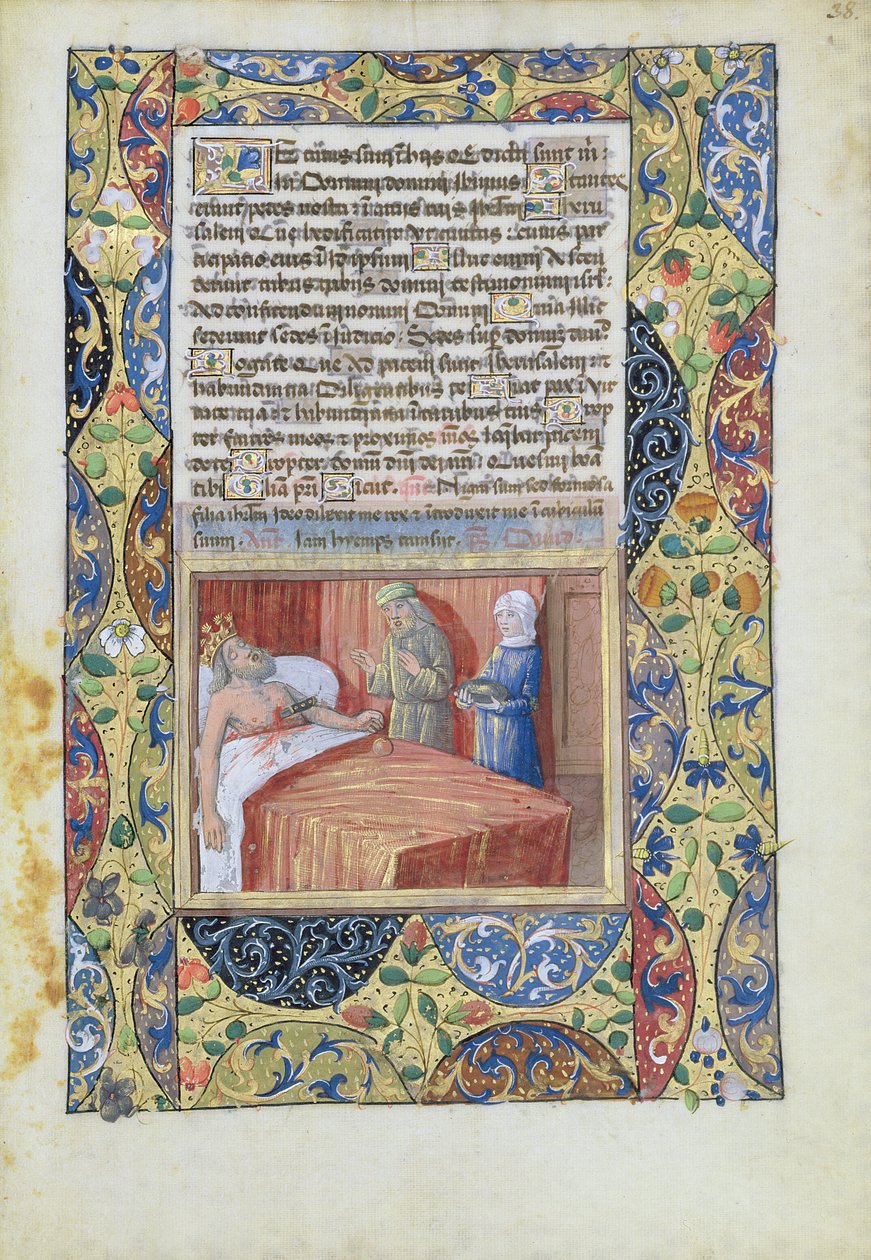 38.
LEtatus sum i his Que dicta sunt mi:
hi Domum domini Ibimus Stantes
erant pedes nostri i atriis tuis Iherlm Iheru
salem Que hedificatur ut civitas : cuius par
ticipatio eius i Idipsum Illuc enim Ascen
derunt tribus tribus domini testimonium isrl:
Ad confitendum nomini Domini Quia Illic
sederunt sedes i Iudicio : Sedes sup domum
Rogate Que Ad pacem sunt Iherusalem et
habundantia Diligentibus te Fiat pax i
tute tua et habundantia i turribus tuis Prop
ter fratres meos et proximos meos pacem
de te Propter domum dni dei nri Quesivi bona
tibi Glia pri Sicut. ant. Nigra sum sed formosa
filia ihrlm Ideo dilexit me rex et introduxit me i cubiculum
suum. Ant Iam hyemps transiit. Ps David.